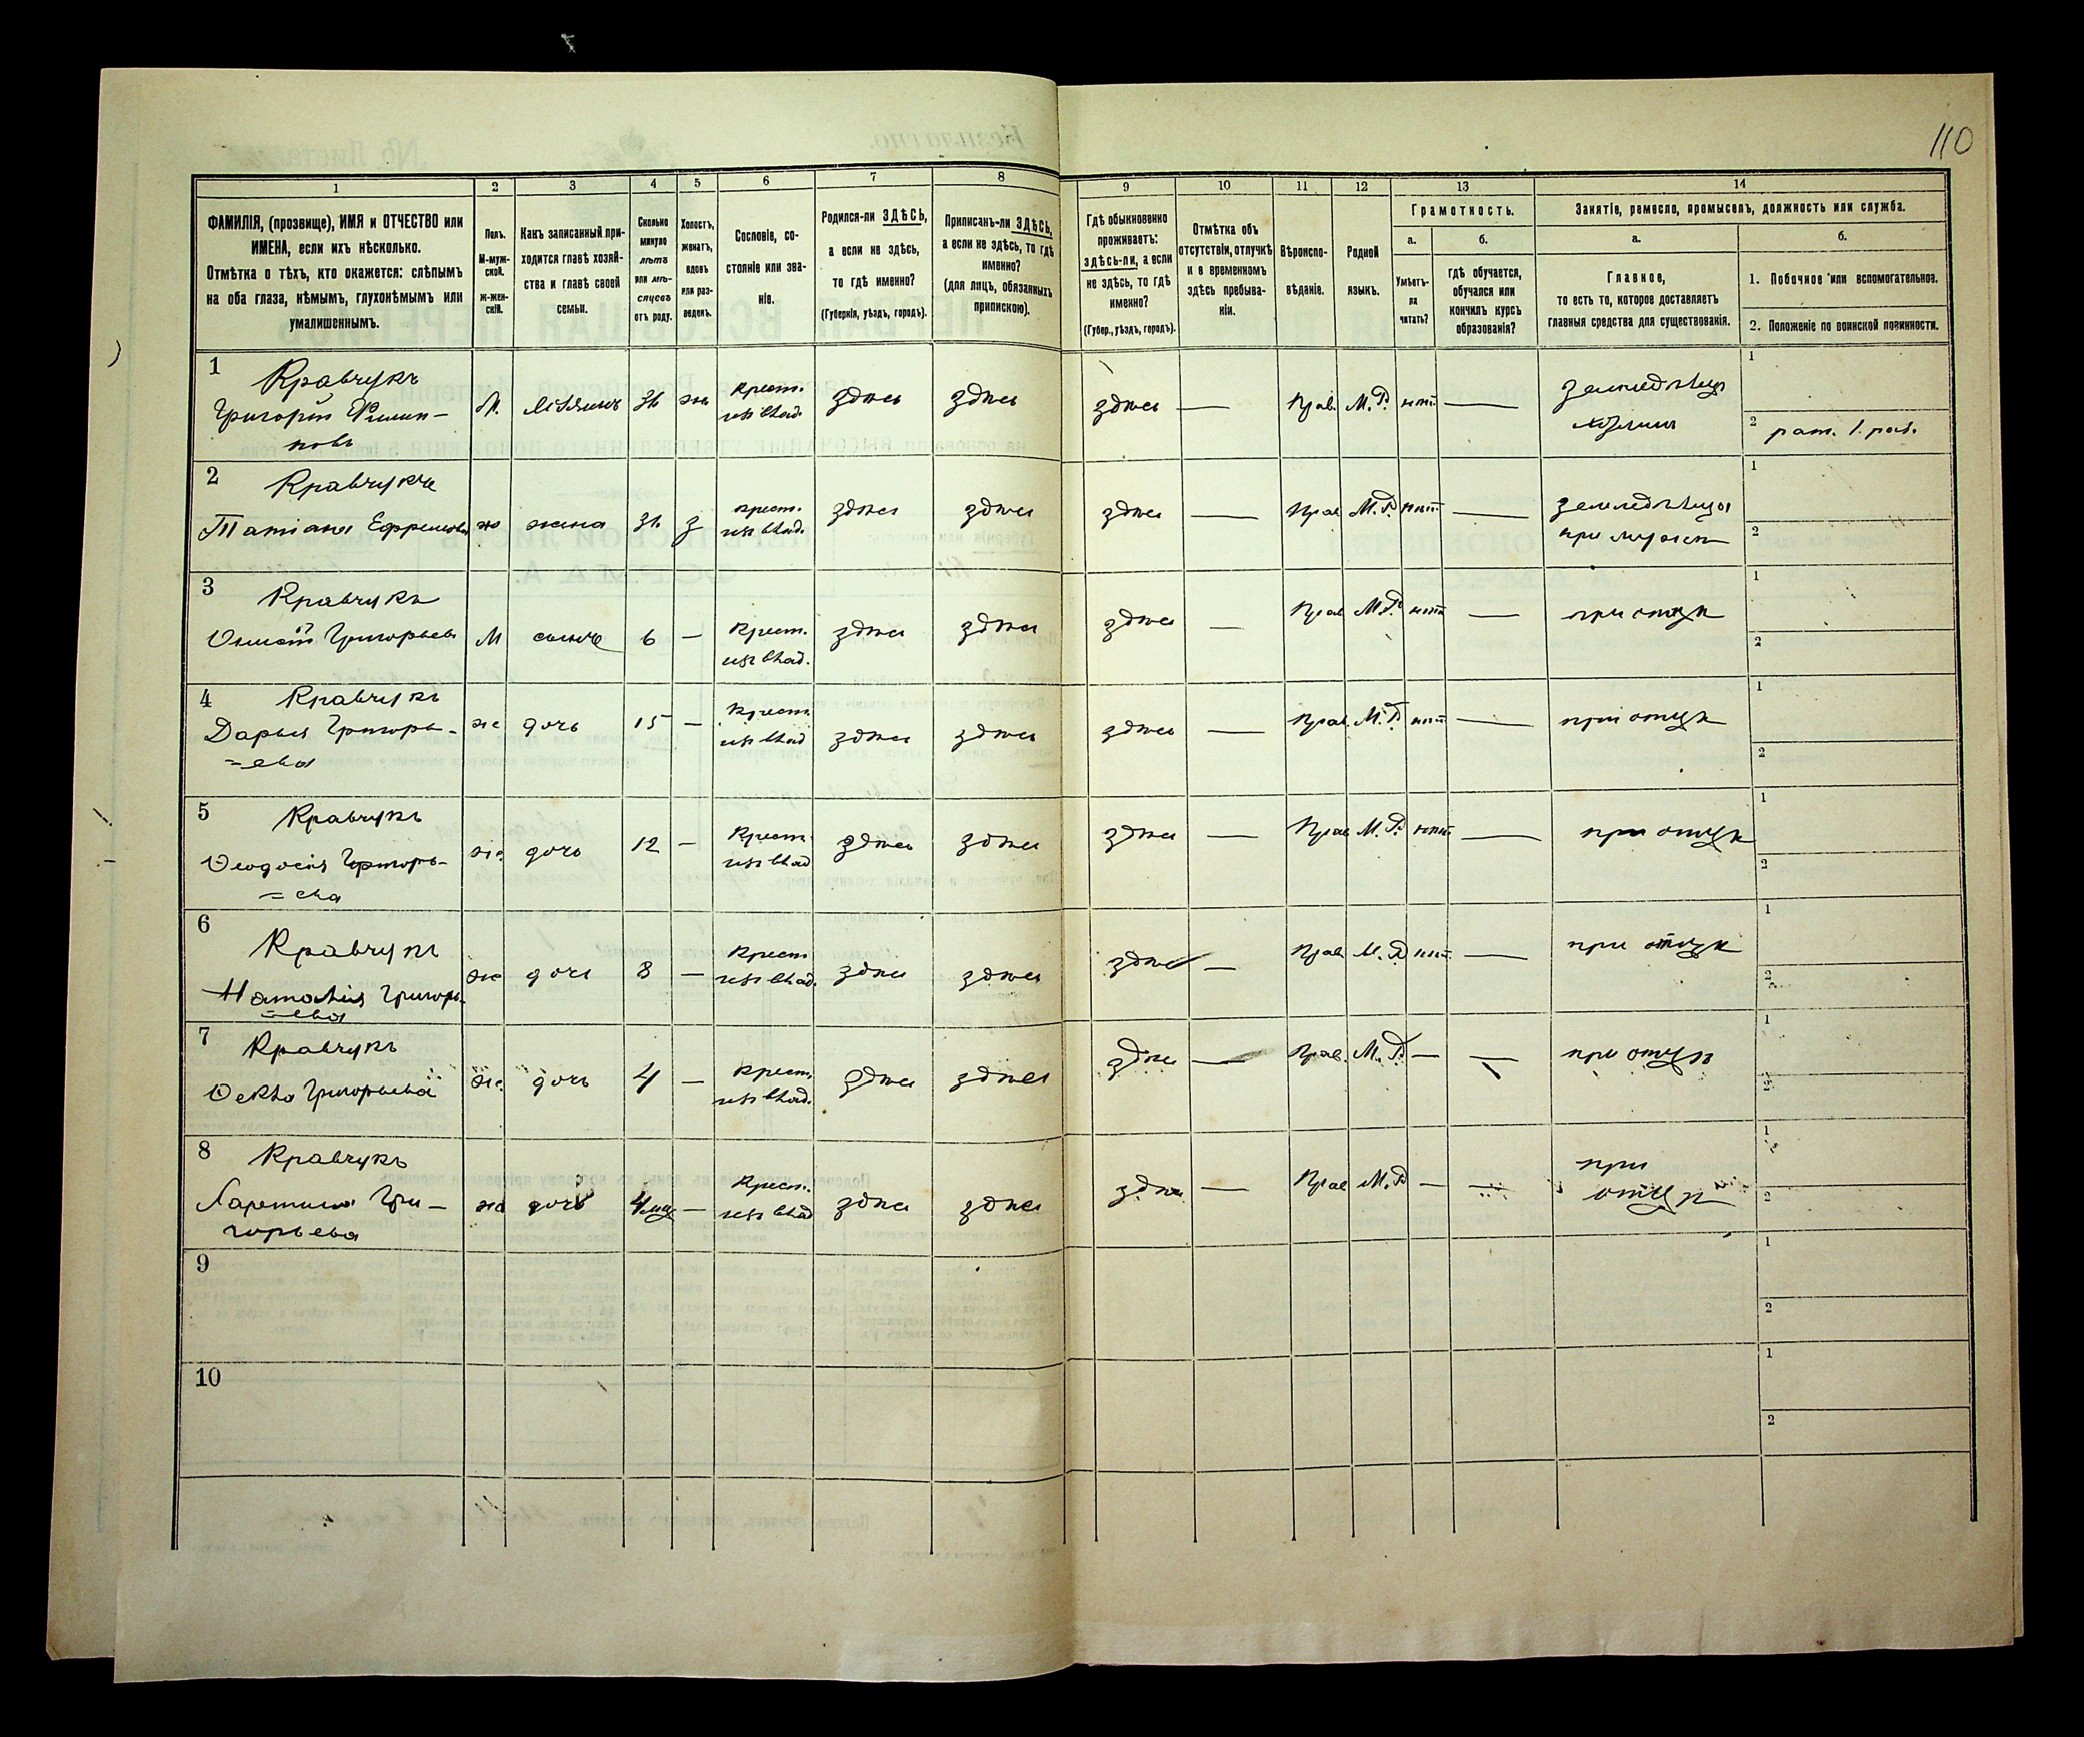 110
1
2
3
4
5
6
7
8
9
10
11
12
13
14
ФАМИЛІЯ, (прозвище), ИМЯ и ОТЧЕСТВО или
ИМЕНА, если ихъ нѣсколько.
Отмѣтка о тѣхъ, кто окажется: слѣпымъ
на оба глаза, нѣмымъ, глухонѣмымъ или
умалишеннымъ.
Полъ.
М-муж-
ской.
Ж-жен-
скій.
Какъ записанный при-
ходится главѣ хозяй-
ства и главѣ своей
семьи.
Сколько
минуло
лѣтъ
или мѣ-
сяцевъ
отъ роду.
Холостъ,
женатъ,
вдовъ
или раз-
веденъ.
Сословіе, со-
стояніе или зва-
ніе.
Родился-ли ЗДѢСЬ,
а если не здѣсь,
то гдѣ именно?
(Губернія, уѣздъ, городъ).
Приписанъ-ли ЗДѢСЬ,
а если не здѣсь, то гдѣ
именно?
(для лицъ, обязанныхъ
припискою).
Гдѣ обыкновенно
проживаетъ:
здѣсь-ли, а если
не здѣсь, то гдѣ
именно?
(Губер., уѣздъ, городъ).
Отмѣтка объ
отсутствіи, отлучкѣ
и о временномъ
здѣсь пребыва-
ніи.
Вѣроиспо-
вѣданіе.
Родной
языкъ.
Грамотность.
а.
б.
Умѣетъ-
ли
читать?
гдѣ обучается,
обучался или
кончилъ курсъ
образованія?
Занятіе, ремесло, промыселъ, должность или служба.
а.
б.
Главное,
то есть то, которое доставляетъ
главныя средства для существованія.
1. Побочное или вспомогательное.
2. Положеніе по воинской повинности.
1 Кравчукъ
Григорій Филип-
повъ
М. хозяинъ 36 ж Крест. здѣсь здѣсь здѣсь — Прав. М.Р. нѣт — земледѣлецъ
хозяинъ
1
2 рат. 1. раз.
2 Кравчукъ
Татіана Ефремова ж жена 36 з Крест. здѣсь здѣсь здѣсь — Прав М.Р. нѣт — земледѣлица
при мужѣ
1
2
3 Кравчукъ
Григорьевъ М сынъ 6 — Крест. здѣсь здѣсь здѣсь — Прав М.Р. нѣт — при отцѣ
1
2
4 Кравчукъ
Дарья Григорь-
=ева
ж дочь 15 — Крест. здѣсь здѣсь здѣсь — Прав. М.Р. нѣт — при отцѣ
1
2
5 Кравчукъ
Ѳеодосія Григорь-
=ева
ж. дочь 12 — Крест. здѣсь здѣсь здѣсь — Прав М.Р. нѣт — при отцѣ
1
2
6 Кравчукъ
Наталія Григорь-
=ева
ж дочь 8 — Крест здѣсь здѣсь здѣсь — Прав М.Р нѣт — при отцѣ
1
2
7 Кравчукъ
Ѳекла Григорьева
ж. дочь 4 — Крест. здѣсь здѣсь здѣсь — Прав. М.Р. — — при отцѣ
1
2
8 Кравчукъ
Харитина Гри-
горьева
ж дочь 4 мц — Крест. здѣсь здѣсь здѣсь — Прав М.Р — — при
отцѣ
1
2
9
1
2
10
1
2